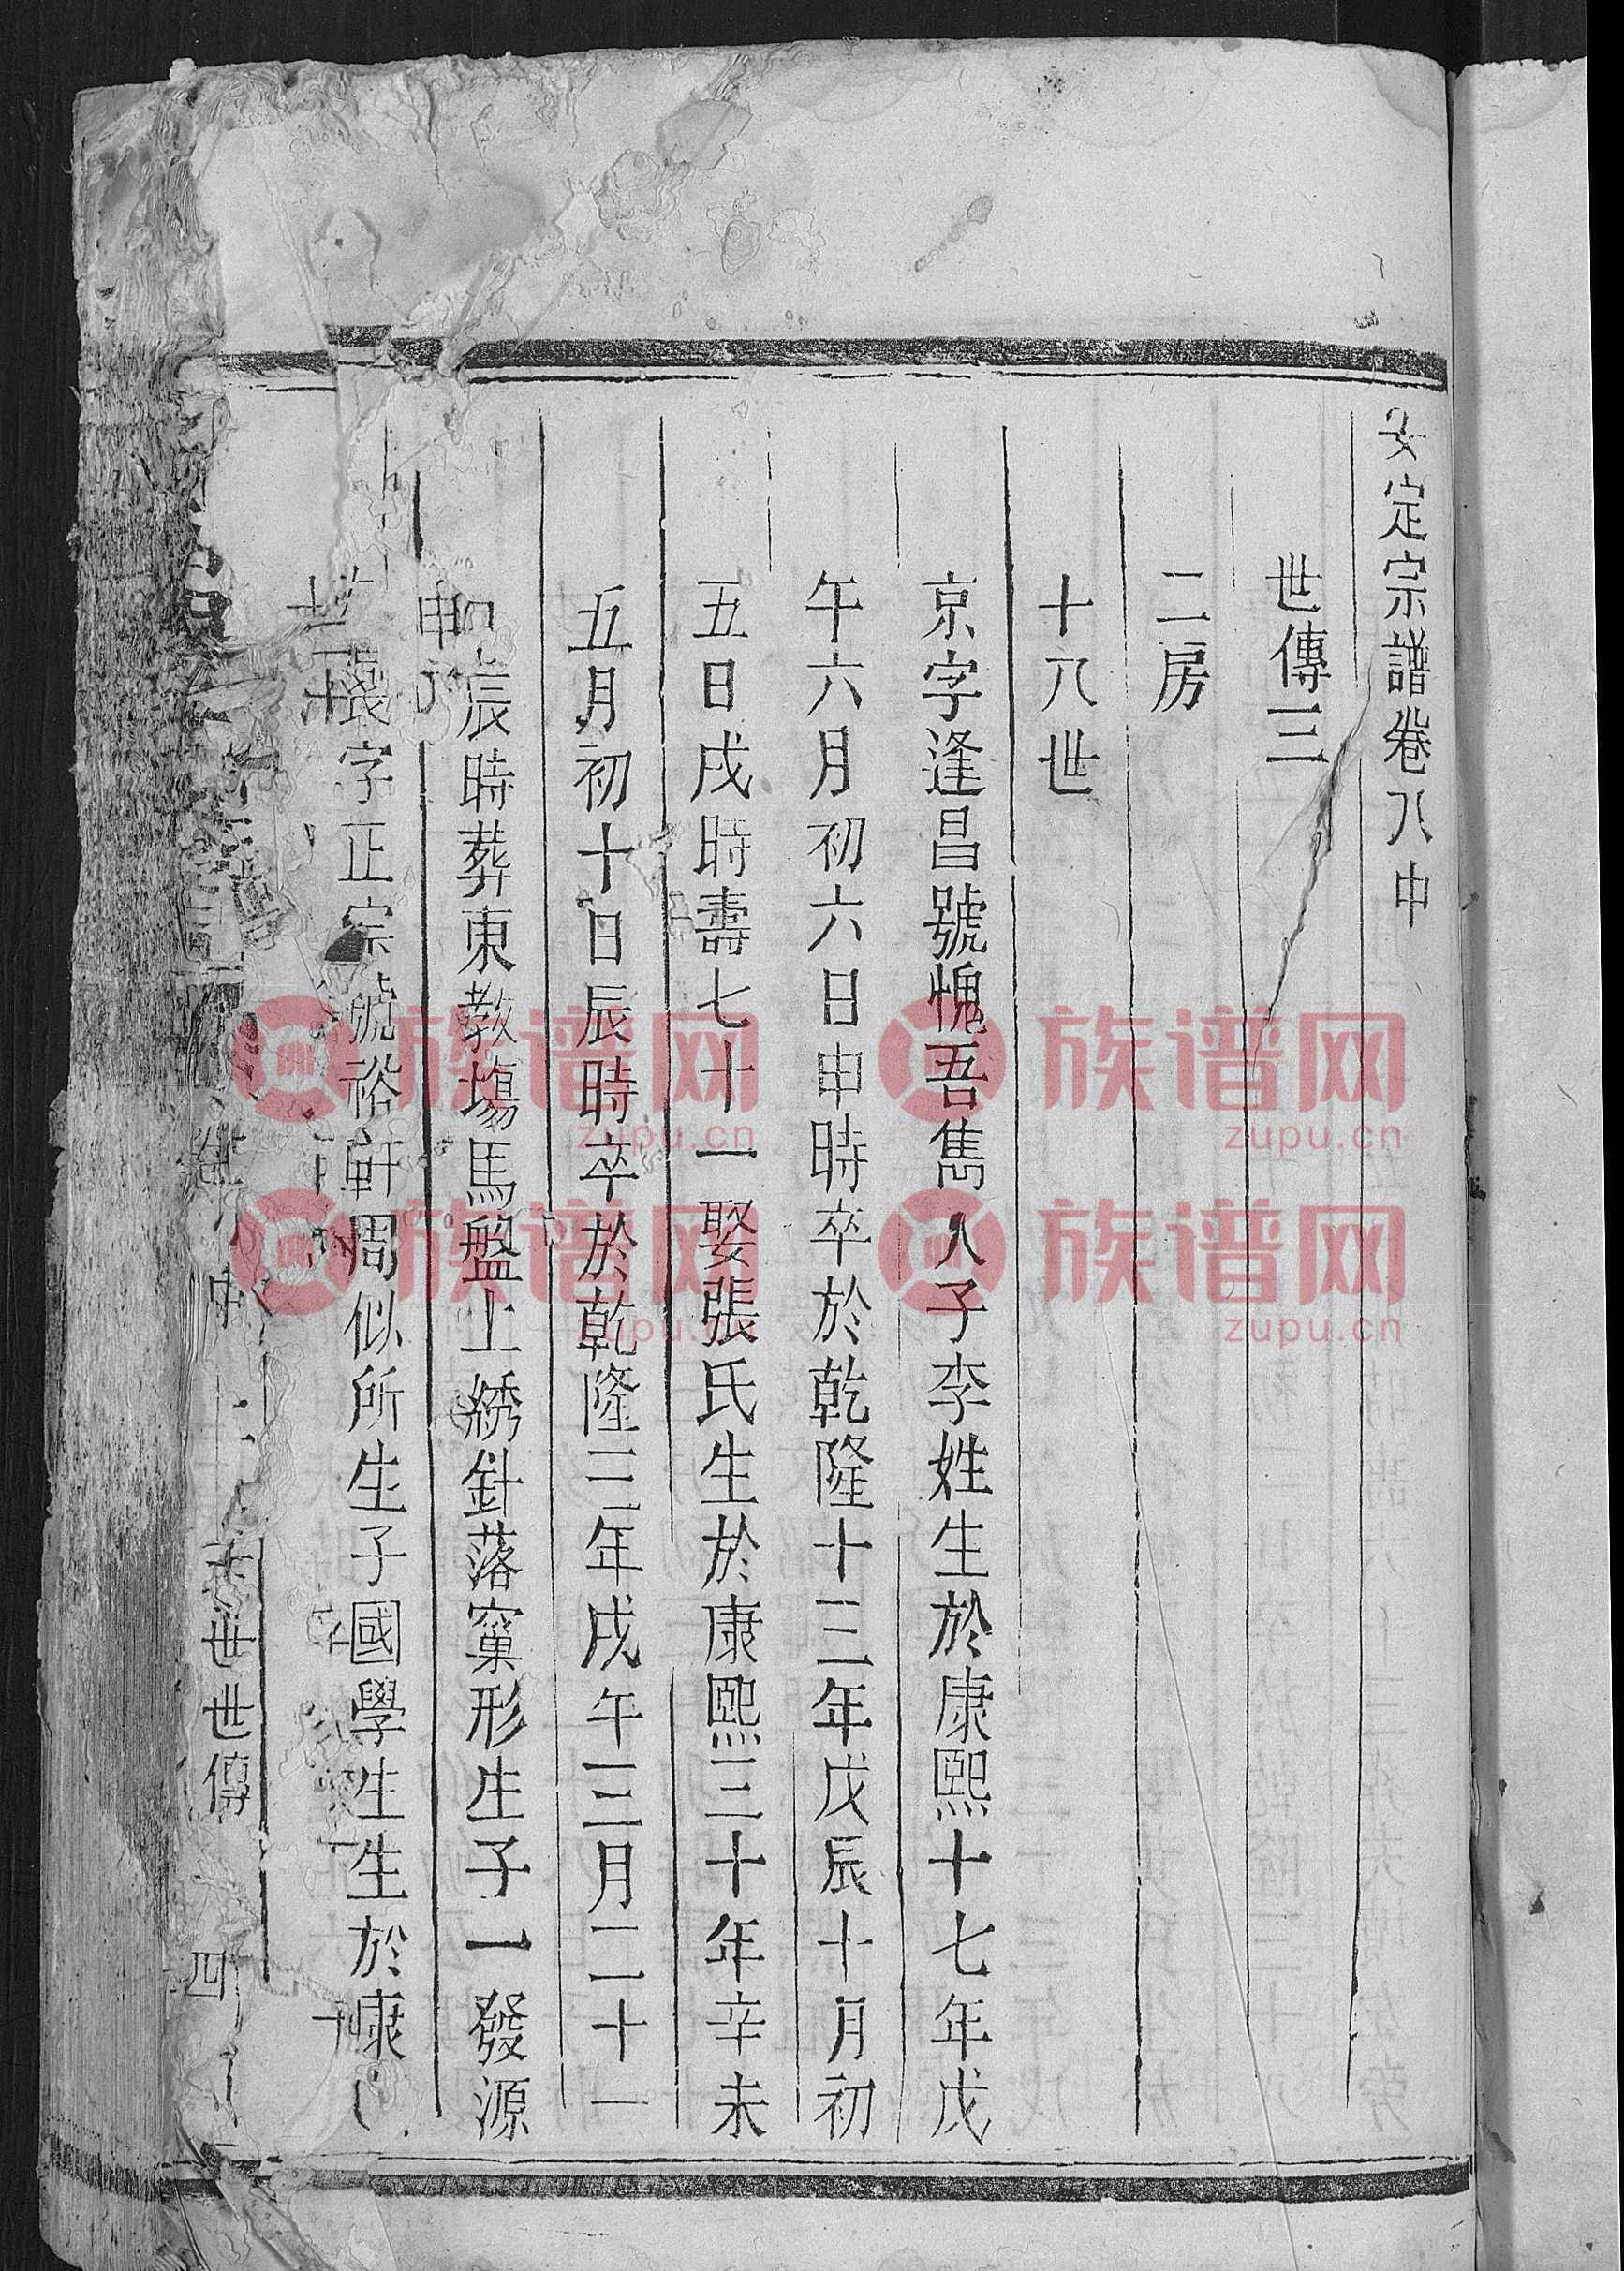 安定宗譜卷八中
世傳三
二房
十八世
京字逢昌號愧吾雋人子李姓生於康熙十七年戊
午六月初六日申時卒於乾隆十三年戊辰十月初
五日戌時壽七十一娶張氏生於康熙三十年辛未
五月初十日辰時卒於乾隆三年戊午三月二十一
日辰時葬東教塲馬盤上綉針落窠形生子一發源
字正宗號裕軒周似所生子國學生生於康
中 世世傳 四
族谱网
zupu.cn
族谱网
zupu.cn
族谱网
zupu.cn
族谱网
zupu.cn